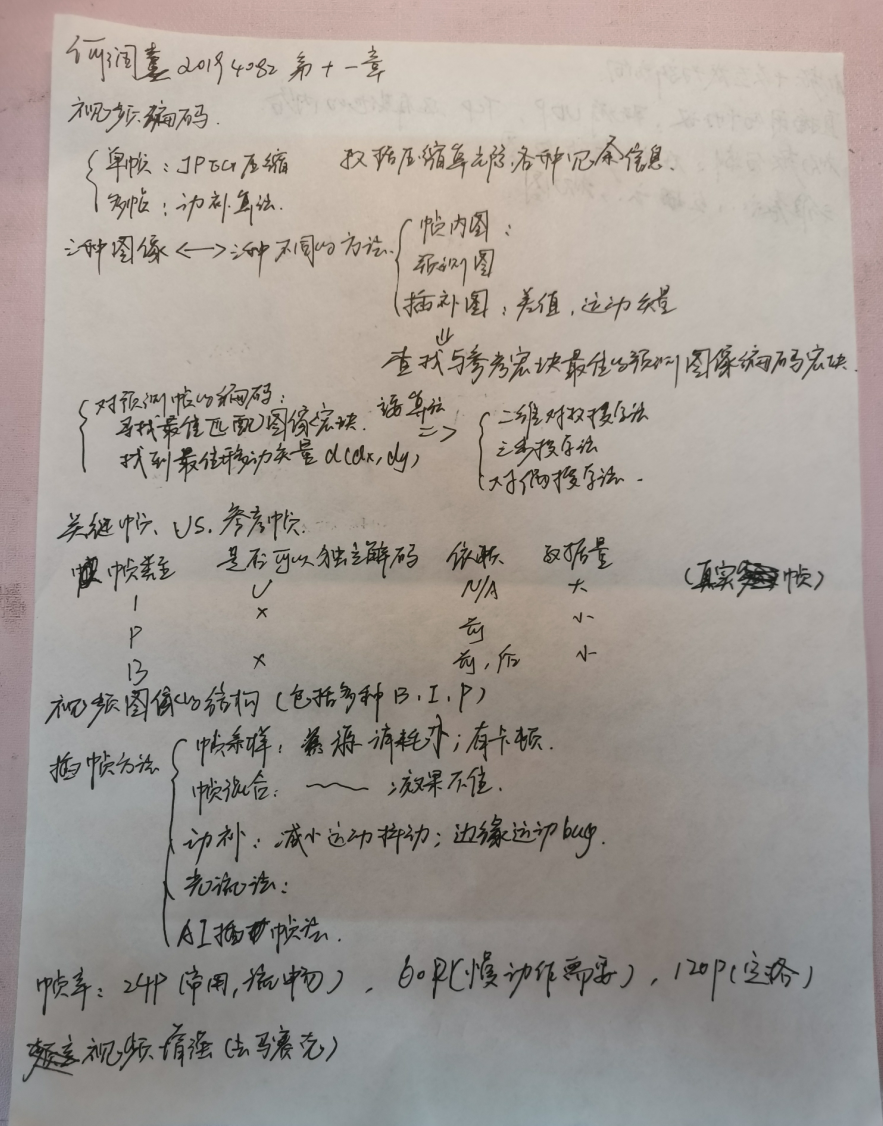 20194082 第十一章
视频编码.
单帧：JPEG压缩 数据压缩算去除各种冗余信息.
多帧：动补算法.
三种图像 <—> 三种不同的方法
帧内图：
预测图
插补图：差值，运动矢量
⇓
查找与参考宏块最佳的预测图像编码宏块.
对预测帧的编码：
寻找最佳匹配图像宏块. 该算法 =>
找到最佳移动矢量 d(dx, dy)
二维对数搜索法
三步搜索法
对偶搜索法.
关键帧 VS. 参考帧.
帧类型 是否可以独立解码 依赖 数据量 (真实帧)
I ✓ N/A 大
P × 前 小
B × 前，后 小
视频图像的结构 (包括多种B. I. P)
插帧方法
帧采样： 消耗小；有卡顿.
帧混合： ～～ ；效果不佳.
动补：减小运动抖动；边缘运动bug.
光流法：
AI插帧法.
帧率：24P (常用, 流畅) , 60P (慢动作需要) , 120P (定格)
视频增强 (去马赛克)